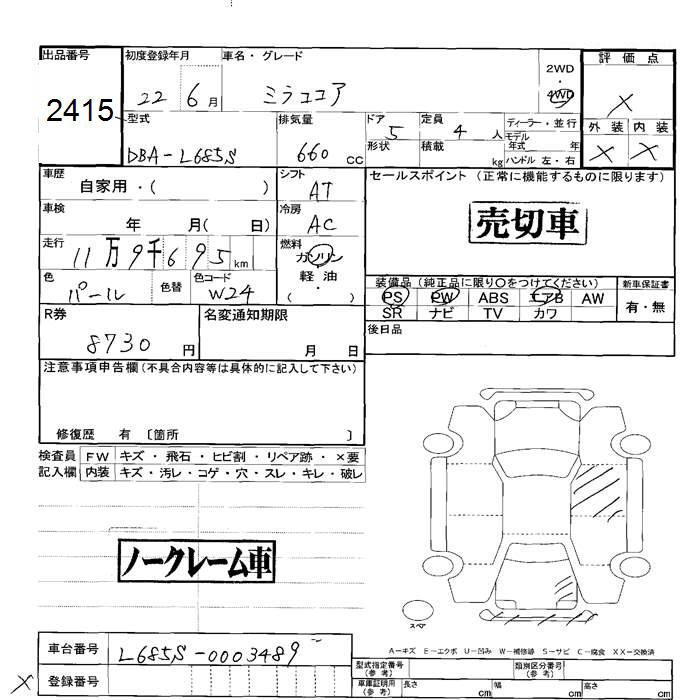 出品番号 初度登録年月 車名・グレード 2WD・4WD 評価点
2415 22 6月 ミラココア X
型式 排気量 ドア 定員 ディーラー・並行 外装 内装
DBA-L685S 660 CC 5 4人 モデル年式 年 X X
形状 積載 kg ハンドル 左・右
車歴 シフト セールスポイント (正常に機能するものに限ります)
自家用・( ) AT
車検 冷房 売切車
年 月( 日) AC
走行 燃料
11万9千695km ガソリン
色 色替 色コード 軽油 装備品(純正品に限り○をつけてください) 新車保証書
パール W24 ・( ) PS PW ABS エアB AW 有・無
R券 名変通知期限 SR ナビ TV カワ
8730円 月 日 後日品
注意事項申告欄(不具合内容等は具体的に記入して下さい)
修復歴 有 〔箇所 〕
検査員 FW キズ・飛石・ヒビ割・リペア跡・×要
記入欄 内装 キズ・汚レ・コゲ・穴・スレ・キレ・破レ
ノークレーム車
スペア
A-キズ E-エクボ U-凹み W-補修跡 S-サビ C-腐食 XX-交換済
車台番号 L685S-0003489
X 登録番号
型式指定番号(参考) 類別区分番号(参考)
車庫証明用(参考) 長さ cm 幅 cm 高さ cm